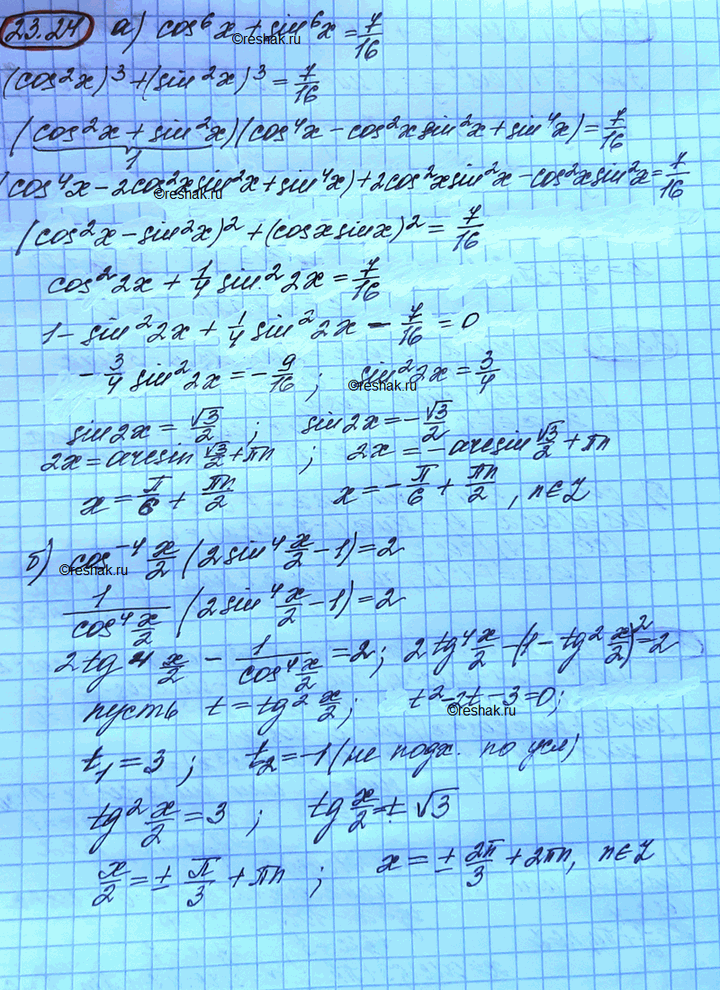 23.24 а) cos⁶x + sin⁶x = 7/16
©reshak.ru
(cos²x)³ + (sin²x)³ = 7/16
(cos²x + sin²x)(cos⁴x - cos²x sin²x + sin⁴x) = 7/16
1
(cos⁴x - 2cos²x sin²x + sin⁴x) + 2cos²x sin²x - cos²x sin²x = 7/16
©reshak.ru
(cos²x - sin²x)² + (cosx sinx)² = 7/16
cos²2x + 1/4 sin²2x = 7/16
1 - sin²2x + 1/4 sin²2x - 7/16 = 0
- 3/4 sin²2x = - 9/16 ; sin²2x = 3/4
©reshak.ru
sin2x = √3/2 ; sin2x = - √3/2
2x = arcsin √3/2 + πn ; 2x = - arcsin √3/2 + πn
x = π/6 + πn/2 x = - π/6 + πn/2 , n∈Z
б) cos⁻⁴ x/2 (2sin⁴ x/2 - 1) = 2
©reshak.ru
1/cos⁴ x/2 (2sin⁴ x/2 - 1) = 2
2tg⁴ x/2 - 1/cos⁴ x/2 = 2 ; 2tg⁴ x/2 - (1 - tg² x/2)² = 2
пусть t = tg² x/2 ; t² - 2t - 3 = 0 ;
©reshak.ru
t₁ = 3 ; t₂ = -1 (не подх. по усл)
tg² x/2 = 3 ; tg x/2 = ± √3
x/2 = ± π/3 + πn ; x = ± 2π/3 + 2πn, n∈Z